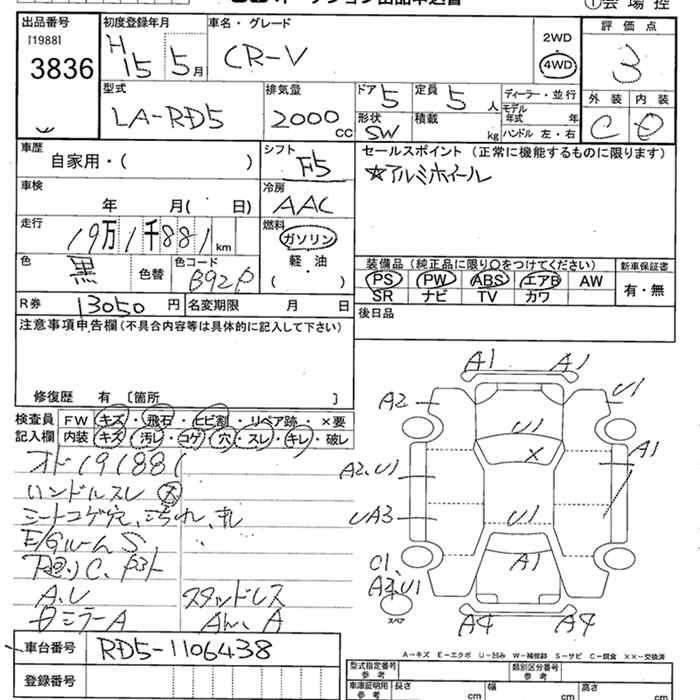 出品番号
[1988]
3836
初度登録年月
H 15 5月
車名・グレード
CR-V
2WD
4WD
①会場控
評価点
3
外装 内装
C
型式
LA-RD5
排気量
2000cc
ドア 5
定員 5人
形状 SW
積載 kg
ディーラー・並行
モデル年式 年
ハンドル 左・右
車歴
自家用・( )
シフト
F5
セールスポイント(正常に機能するものに限ります)
☆アルミホイール
車検
年 月( 日)
冷房
AAC
走行
19万1千881km
燃料
ガソリン
軽・油
( )
色
黒
色替
色コード
B92P
装備品(純正品に限り○をつけてください)
PS PW ABS エアB AW
SR ナビ TV カワ
新車保証書
有・無
R券 13050円
名変期限 月 日
後日品
注意事項申告欄(不具合内容等は具体的に記入して下さい)
修復歴 有 〔箇所 〕
検査員記入欄
FW キズ・飛石・ヒビ割・リペア跡・×要
内装 キズ・汚レ・コゲ・穴・スレ・キレ・破レ
オド191881
ハンドルスレ 大
シートコゲ穴、よごれ、キレ
E/Gルーム S
A.U
スタッドレス
ミラーA
A1
A1
A2
U1
U1
X
A1
A2.U1
UA3
U1
A1
スペア
A4
A4
A-キズ E-エクボ U-凹み W-補修跡 S-サビ C-腐食 ××-交換済
車台番号
RD5-1106438
登録番号
型式指定番号 参考
類別区分番号 参考
車庫証明用 参考
長さ cm
幅 cm
高さ cm